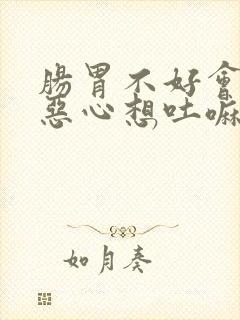 腸胃不好會
惡心想吐嘛
如月奏